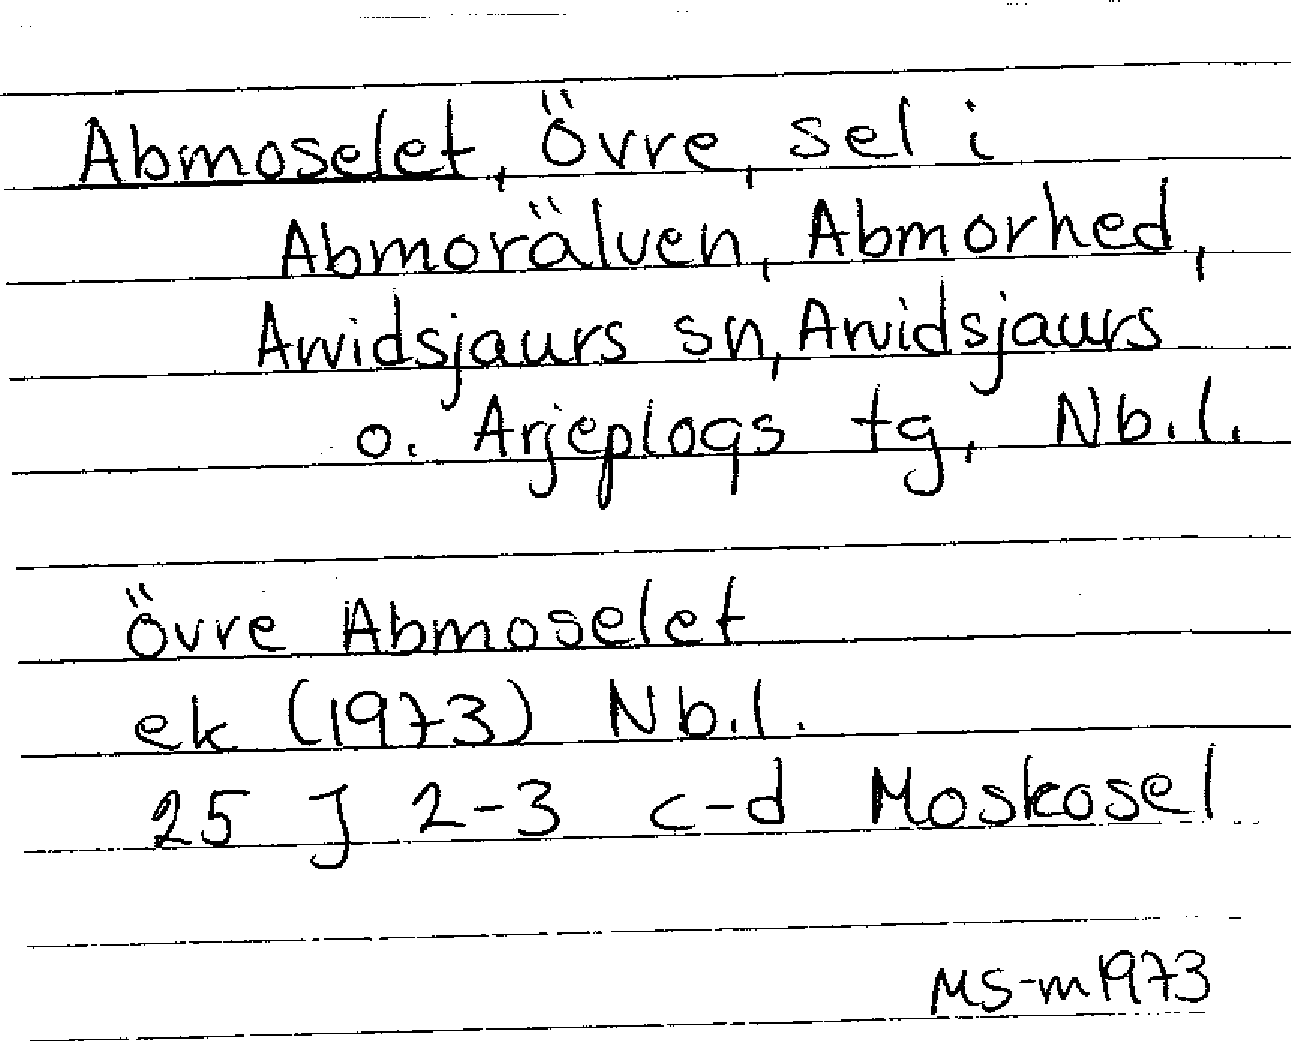 Abmoselet, Övre, sel i
Abmorälven, Abmorhed,
Arvidsjaurs sn, Arvidsjaurs
o. Arjeplogs tg, Nb.l.
Övre Abmoselet
ek (1973) Nb.l.
25 J 2-3 c-d Moskosel
MS-m 1973